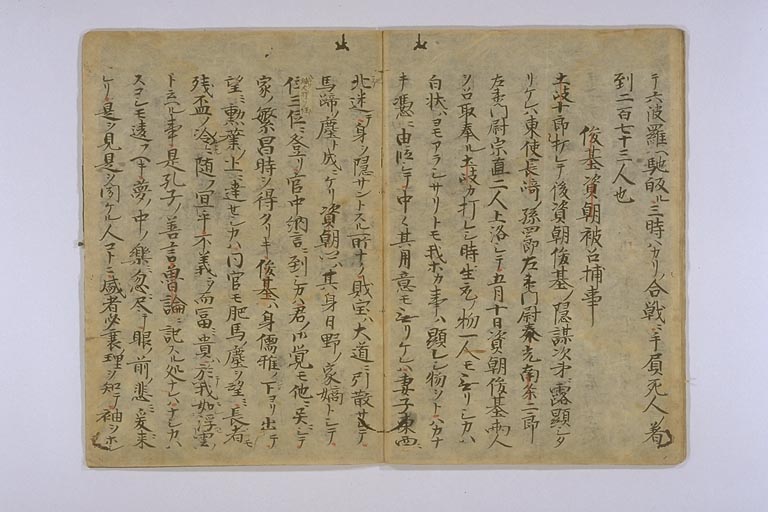 テ六波羅ヘ馳皈ル三時ハカリノ合戦ニ手屓死人着
到二百七十三人也
俊基資朝被召捕事
土岐十郎打レテ後資朝俊基ノ隠謀次第ニ露顕シタ
リケレハ東使長﨑ノ孫四郎左衛門尉泰光南条二郎
左衛門尉宗直二人上洛シテ五月十日資朝俊基両人
ヲ召取奉ル土岐カ打レシ時生虎ノ物一人モ無リシカハ
白状ハヨモアラシサリトモ我ホカ事ハ顕レシ物ヲトハカナ
キ憑ニ由断シテ中〱其用意モ無リケレハ妻子東西ニ
北迷テ身ヲ隠サントスルニ所ナク財宝ハ大道ニ引散サレテ
馬蹄ノ塵ト成ニケリ資朝卿ハ其身日野ノ家嫡トシテ
位三位ニ登リ官中納言ニ到シカハ君ノ御覚モ他ニ異シテ
家ノ繁昌時ヲ得タリキ俊基ハ身儒雅ノ下ヨリ出テ
望ミ勲業ノ上ニ達セシカハ同官モ肥馬ノ塵ヲ望ミ長者モ
残盃ノ冷ニ随フ宜乎不義ニシテ而冨且貴於我如浮雲
ト云ル事是孔子ノ善言魯論ニ記スル処ナレハナシカハ
スコシモ違フヘキ夢ノ中ノ樂忽尽テ眼ノ前ノ悲爰来
ケリ是ヲ見是ヲ聞ケル人コトニ盛者必衰理ヲ知テ袖ヲホ